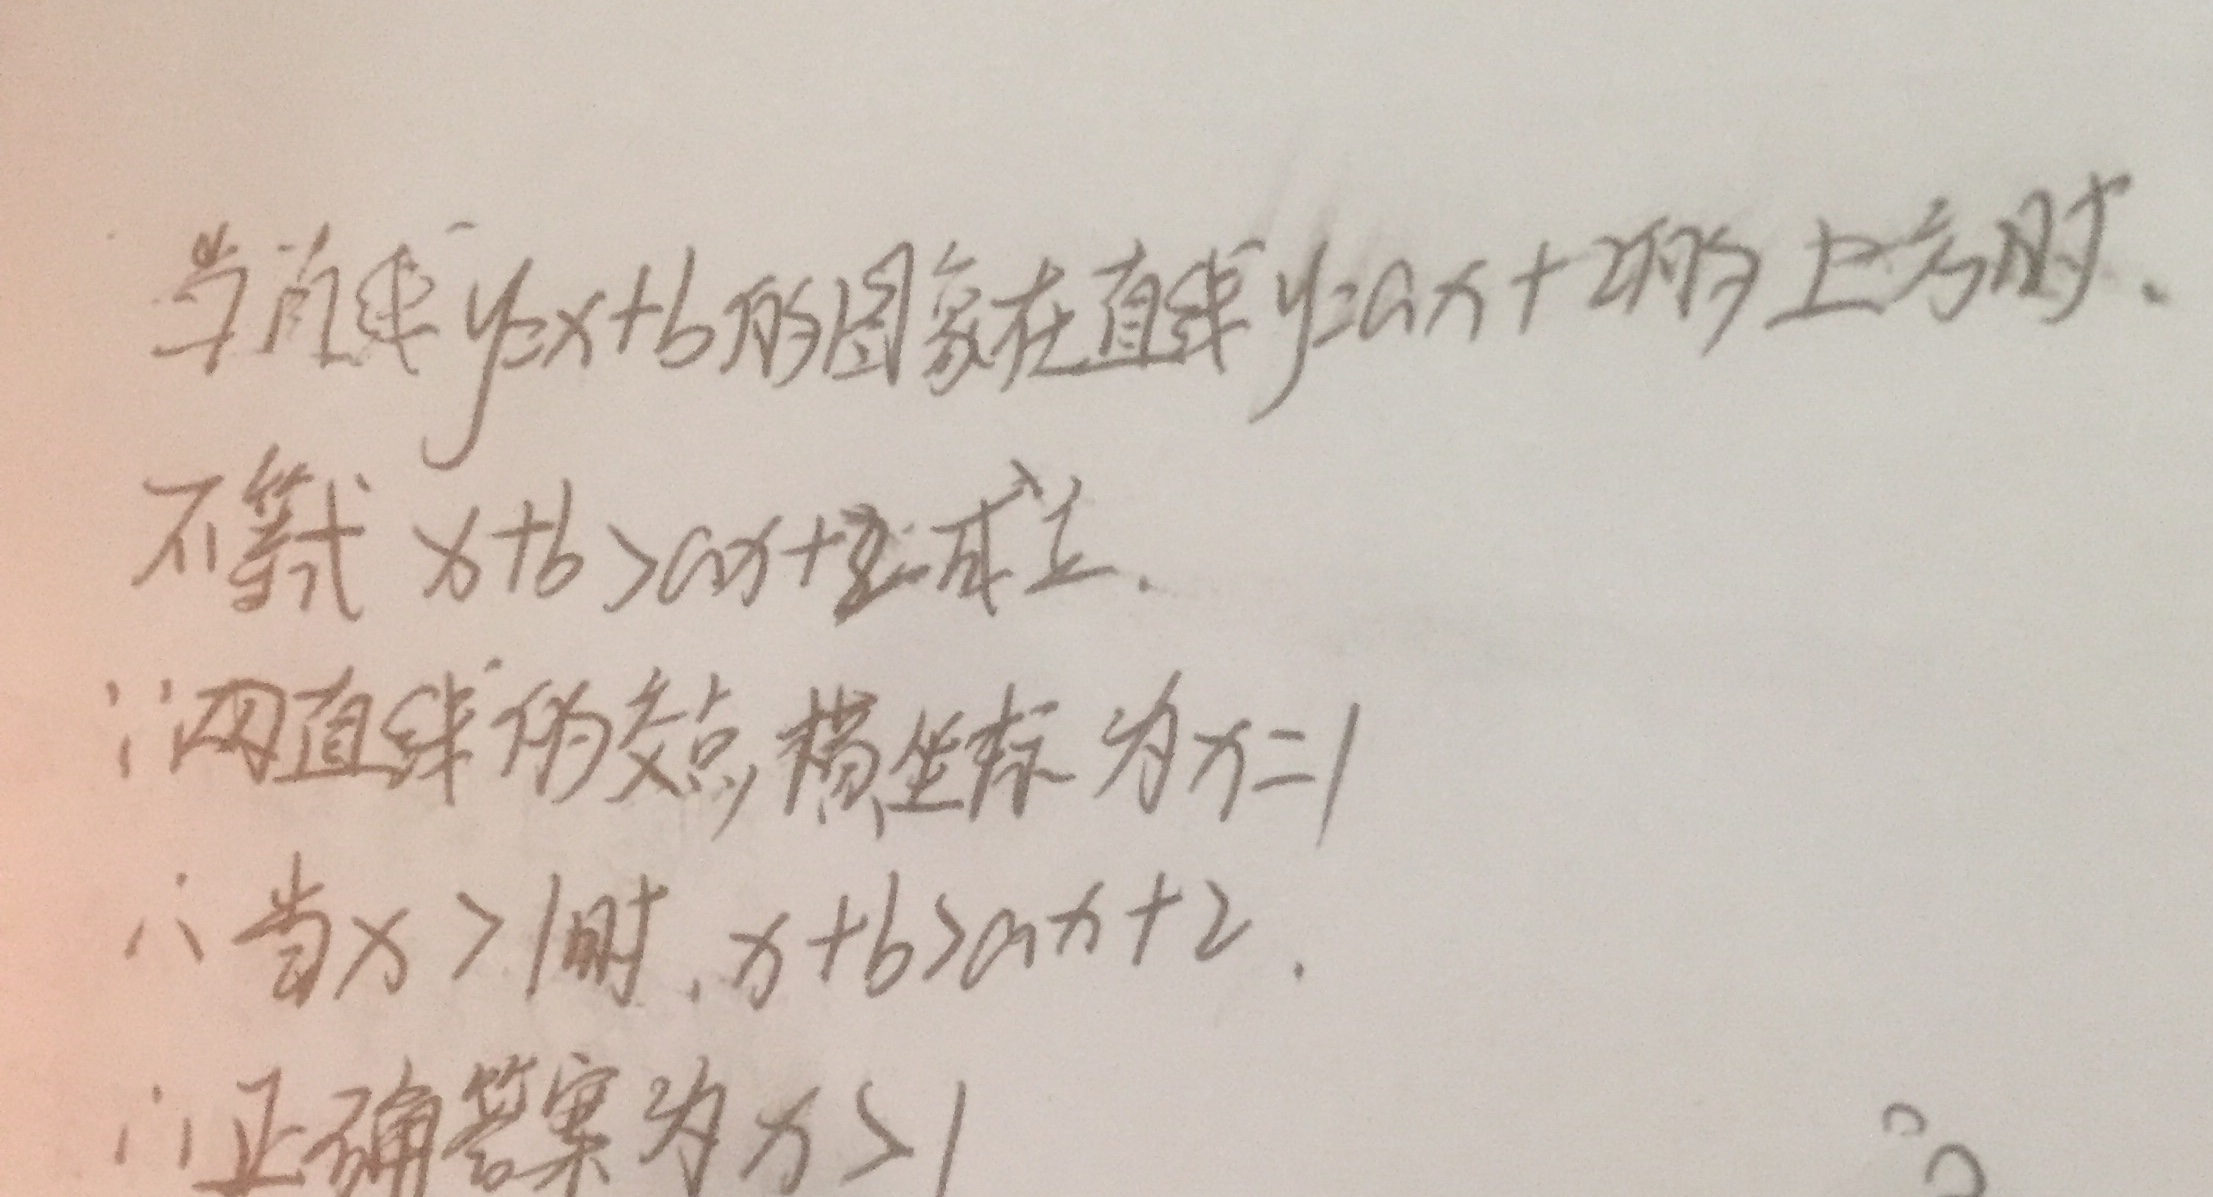 当直线y=x+b的图象在直线y=ax+2的上方时.
不等式 x+b>ax+2成立.
∵两直线的交点,横坐标为x=1
∴当x>1时,x+b>ax+2.
∴正确答案为x>1